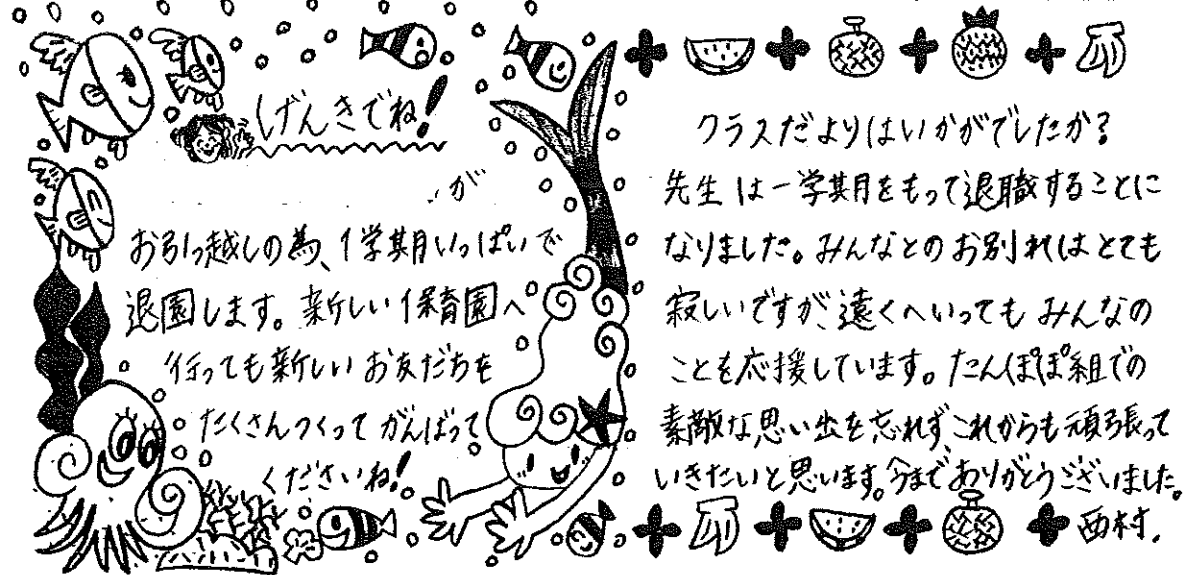 げんきでね!
が
お引っ越しの為、1学期いっぱいで
退園します。新しい保育園へ
行っても新しいお友だちを
たくさんつくってがんばって
くださいね!
クラスだよりはいかがでしたか?
先生は一学期をもって退職することに
なりました。みんなとのお別れはとても
寂しいですが、遠くへいってもみんなの
ことを応援しています。たんぽぽ組での
素敵な思い出を忘れず、これからも頑張って
いきたいと思います。今までありがとうございました。
西村.